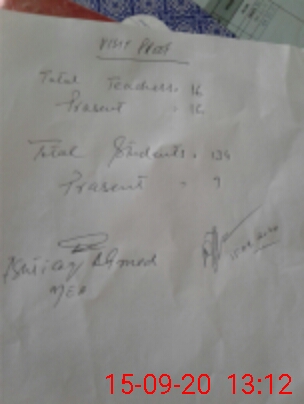 VISIT Proof
Total Teachers = 16
Prasent = 16
Total Students = 134
Prasent = 9
Ahmed
MEA
15-09-20 13:12